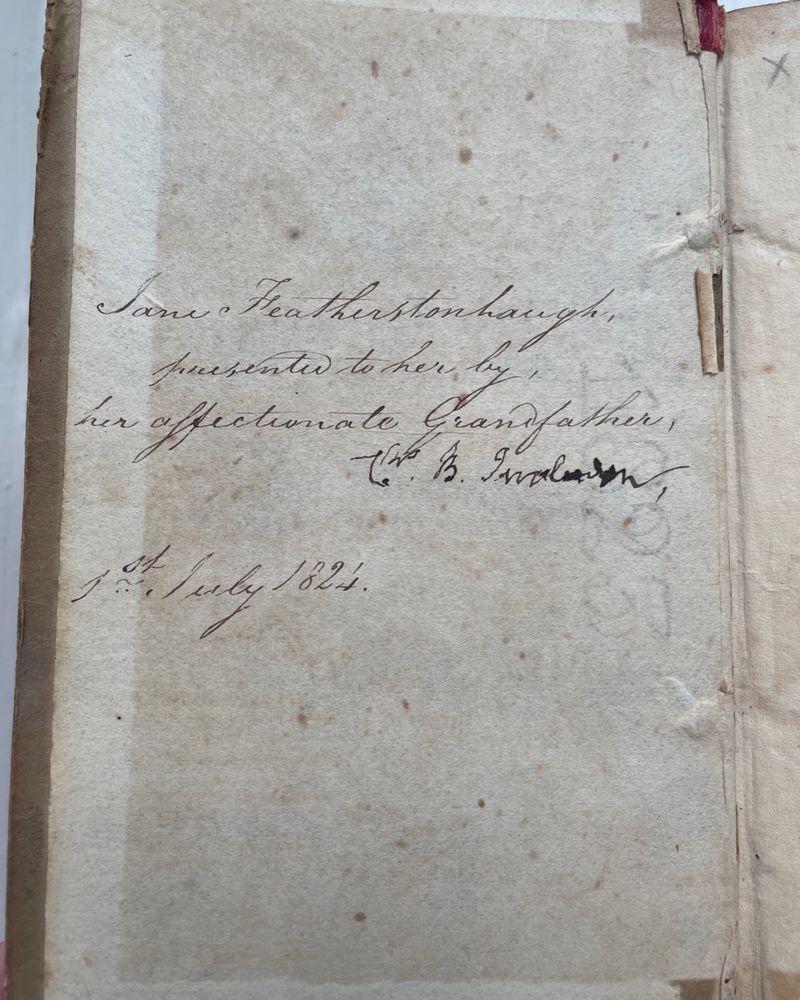 Jane Featherstonhaugh,
presented to her by,
her affectionate Grandfather,
B.
1st. July 1824.
X